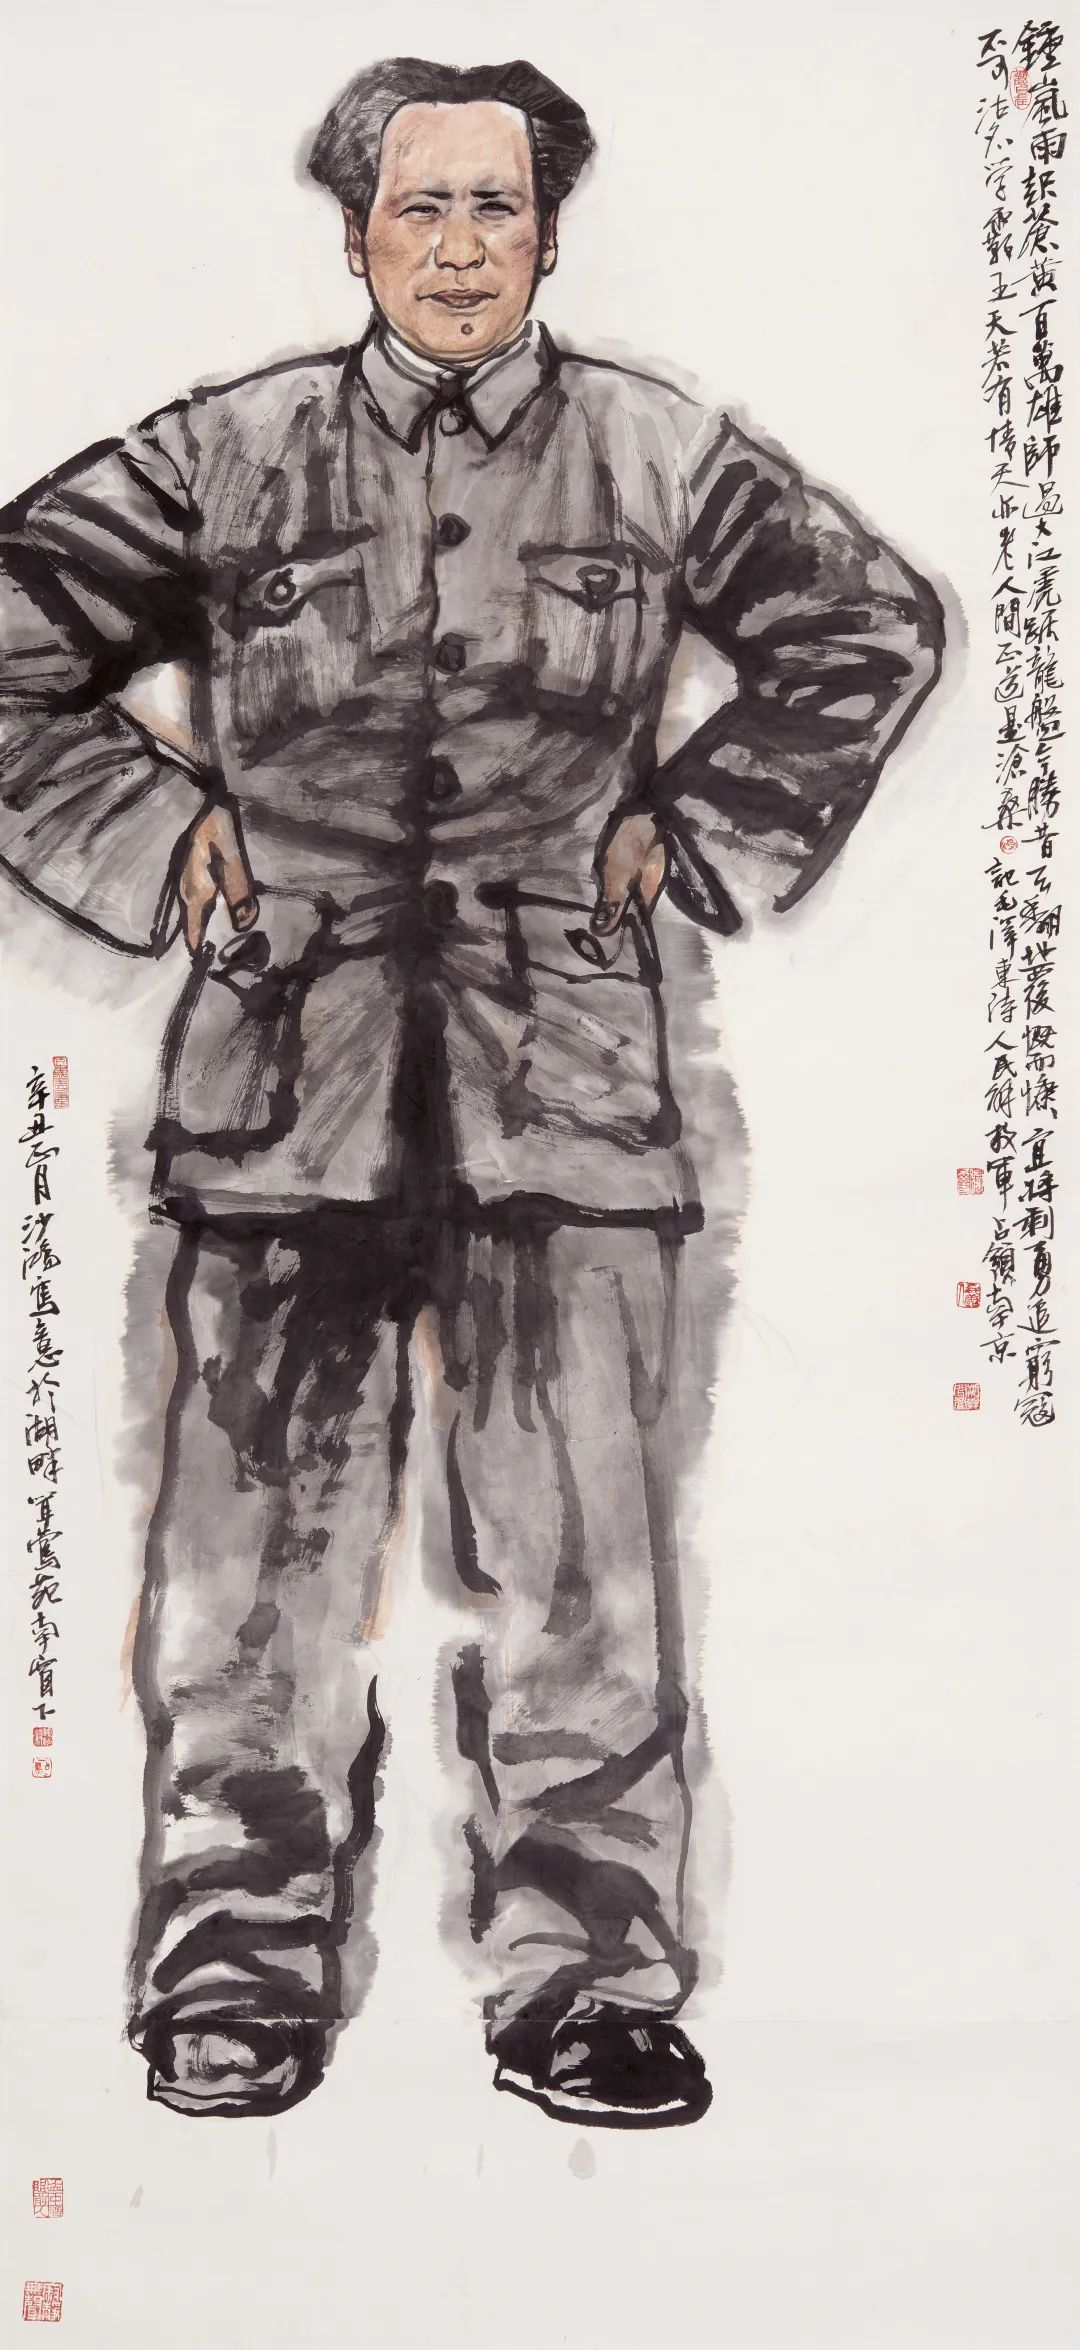 鍾山風雨起蒼黃百萬雄師過大江虎踞龍盤今勝昔天翻地覆慨而慷宜將剩勇追窮寇
不可沽名学霸王天若有情天亦老人間正道是滄桑記毛澤東诗人民解放軍占領南京
辛丑正月沙鴻寫意於湖畔聞鶯苑南窗下